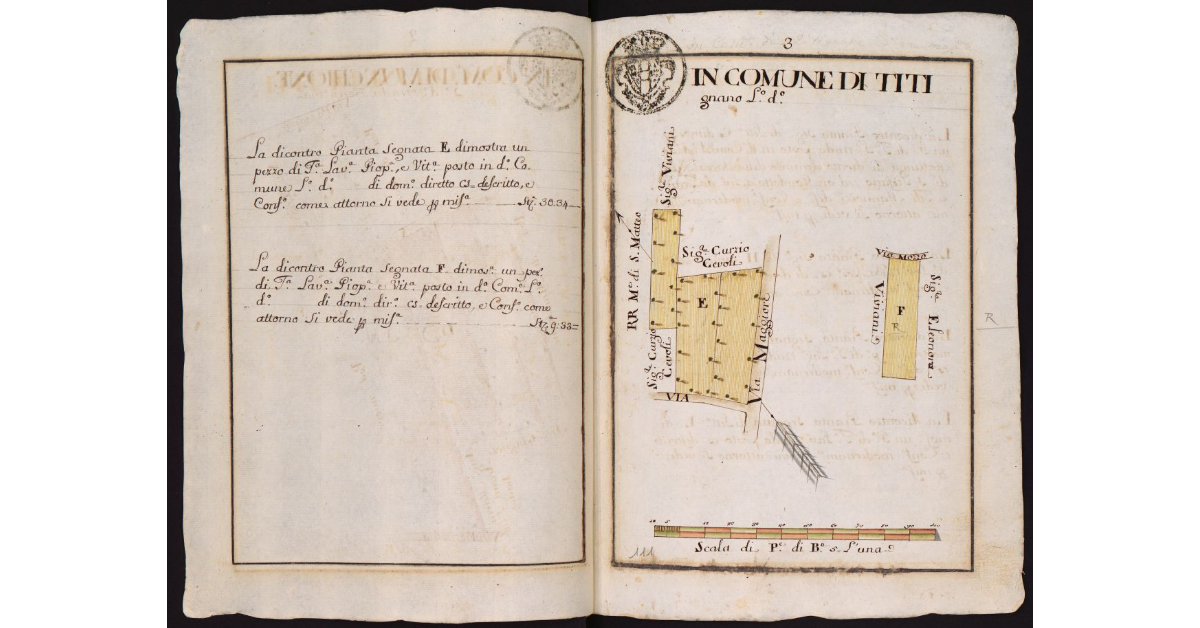 La dicontro Pianta Segnata E dimostra un
pezzo di T.ª Lav.ª Piop.ª, e Vit.ª posto in d.º Co-
mune L.º d.º di dom.º diretto cs. descritto, e
Conf.ª come attorno si vede p mis.ª Stj. 30.34
La dicontro Pianta Segnata F. dimos.ª un pez.º
di T.ª Lav.ª Piop.ª e Vit.ª posto in d.º Com.e L.º
d.º di dom.º dir.º cs. descritto, e Conf.ª come
attorno si vede p mis.ª Stj. 9.33
3
IN COMUNE DI TITI
gnano L.º d.º
Sig.ª Viviani
RR M.e di S. Matteo
Sig.ª Curzio
Cevoli
E
Sig.ª Curzio
Cevoli
VIA
Via Maggiore
Via Mozza
Viviani
F
R
Sig.ª Eleonora
R
10 5 10 20 30 40 50 60 70 80 90 100
111
Scala di P.e di B.a s. l'una